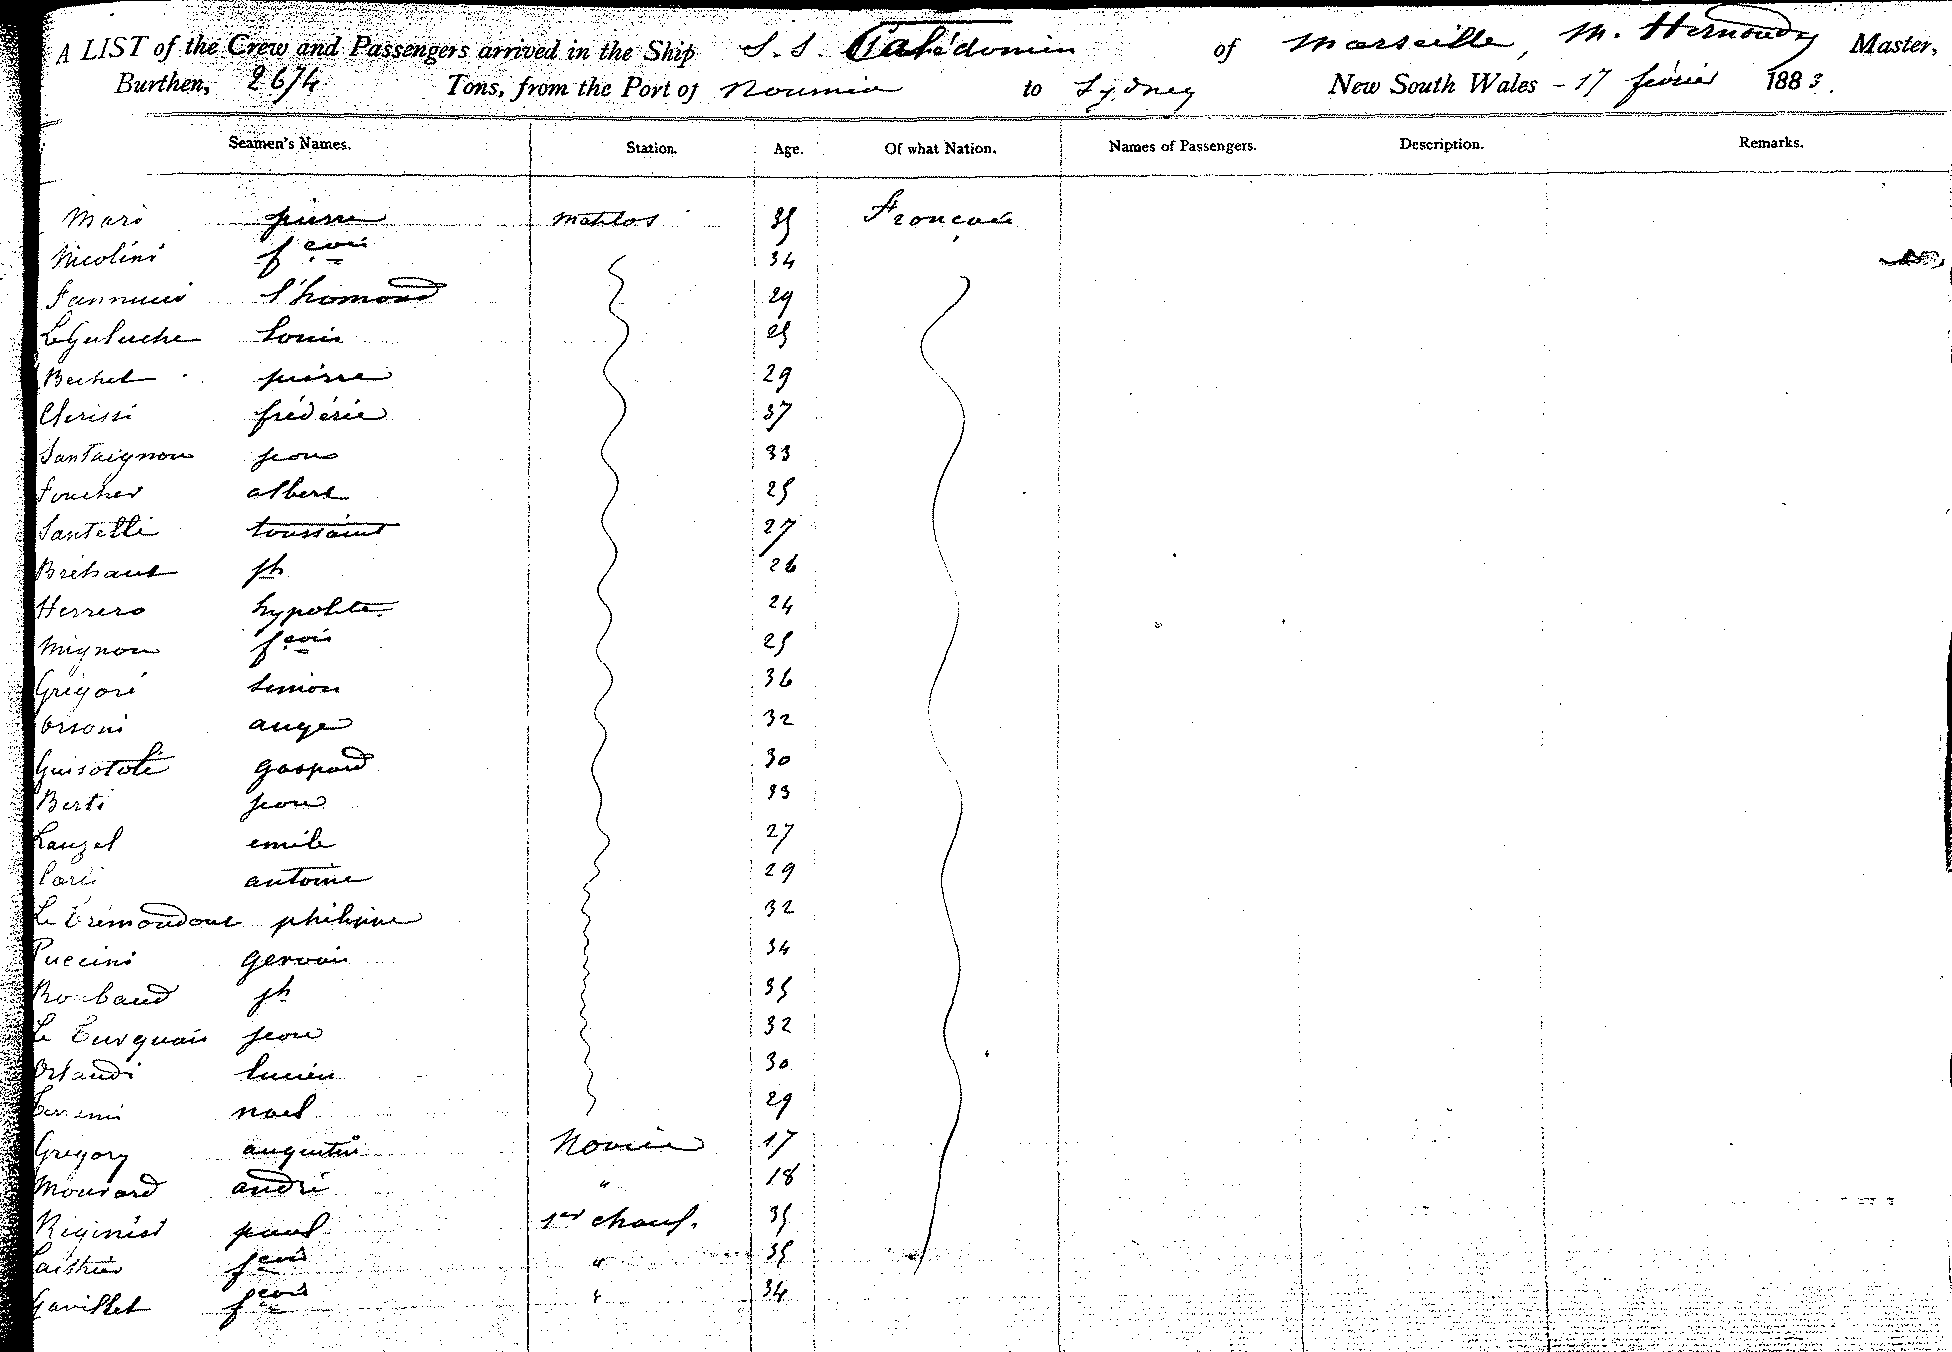 A LIST of the Crew and Passengers arrived in the Ship S. S. Calédonien of Marseille, M. Hernandez Master,
Burthen, 2674 Tons, from the Port of Nouméa to Sydney New South Wales - 17 février 1883.
Seamen's Names. Station. Age. Of what Nation. Names of Passengers. Description. Remarks.
Mari pierre matelot 35 Française
Nicolini fçois 34
l'homond 29
Louis 25
Bechet pierre 29
Clerissi frédéric 37
Santaignon jean 33
Foucher albert 25
Santelli toussaint 27
Bréhaut jh 26
Herrero hypolite 24
Mignon fçois 25
Grégori simon 36
Orsoni ange 32
gaspard 30
Berti jean 33
Lauzel emile 27
antoine 29
Le Trémoudout philippe 32
Puccini gervais 34
Roubaud jh 35
Le Turquais jean 32
Orlandi lucien 30
noel 29
Gregory augustin Novice 17
Mourard andré " 18
paul 1er chauf. 35
fçois " 35
Gavillet fçois " 34